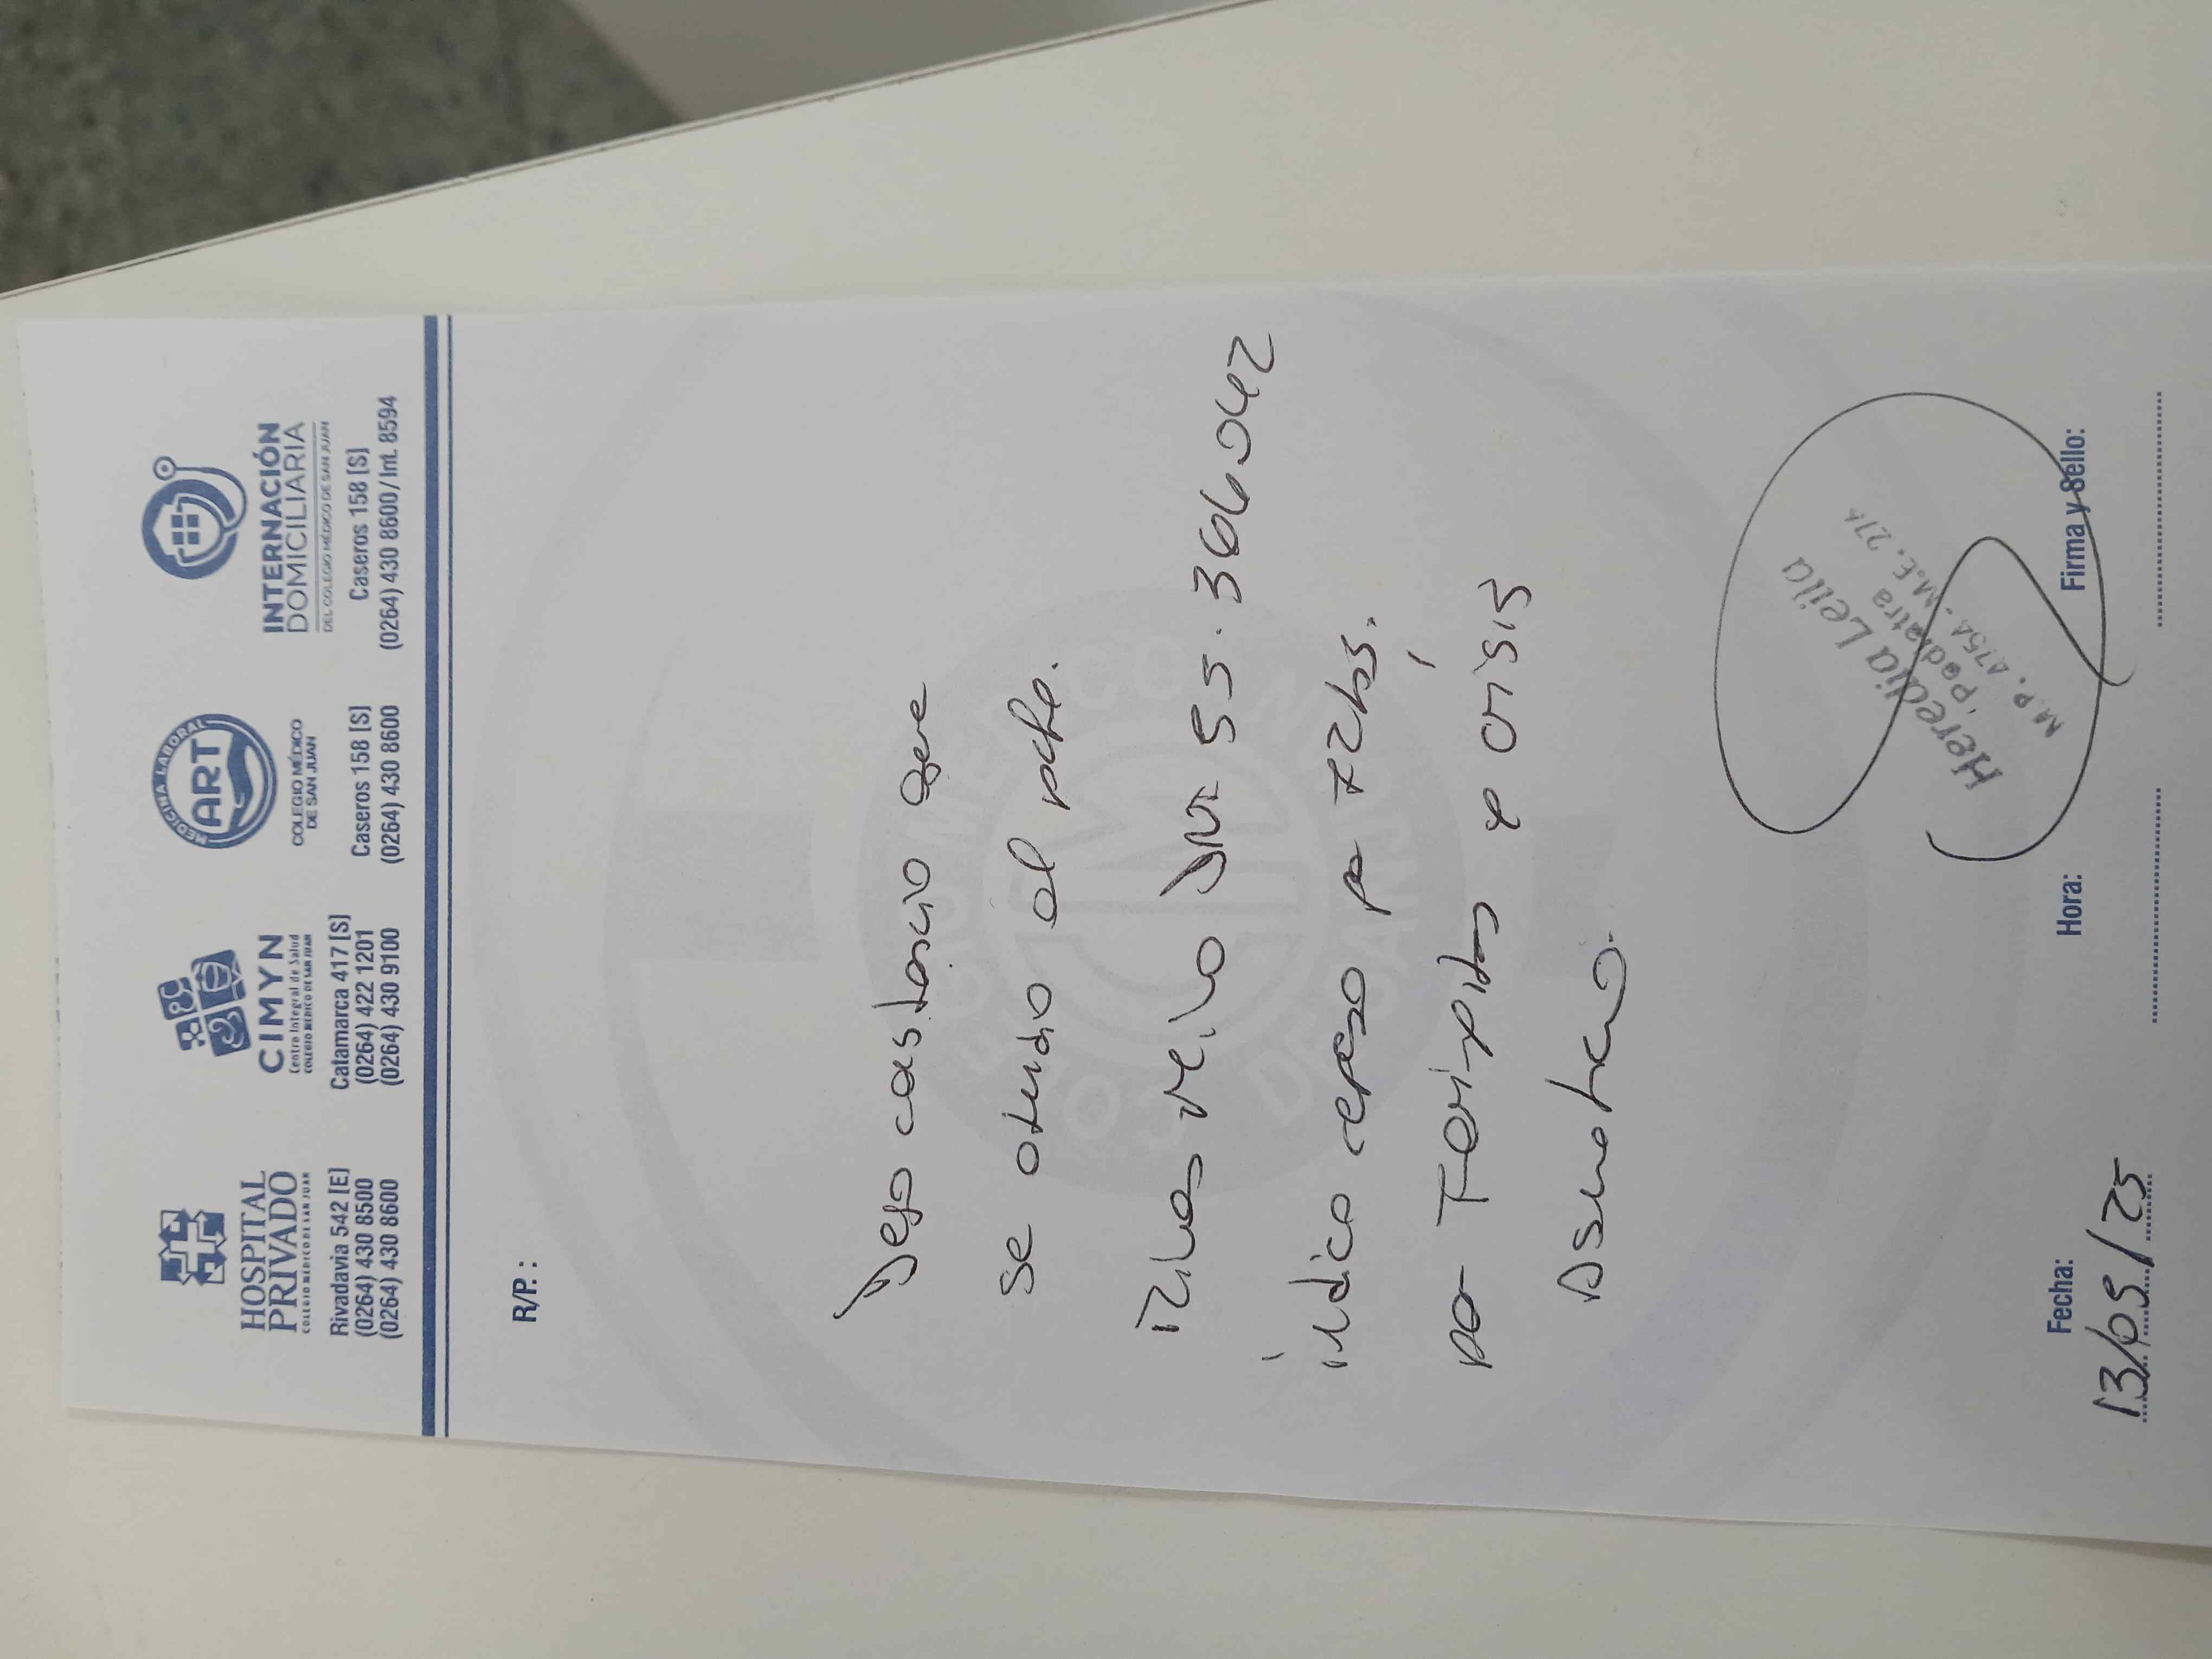 HOSPITAL
PRIVADO
COLEGIO MEDICO DE SAN JUAN
Rivadavia 542 [E]
(0264) 430 8500
(0264) 430 8600
CIMYN
Centro Integral de Salud
COLEGIO MEDICO DE SAN JUAN
Catamarca 417 [S]
(0264) 422 1201
(0264) 430 9100
MEDICINA LABORAL
ART
COLEGIO MÉDICO
DE SAN JUAN
Caseros 158 [S]
(0264) 430 8600
INTERNACIÓN
DOMICILIARIA
DEL COLEGIO MÉDICO DE SAN JUAN
Caseros 158 [S]
(0264) 430 8600/ Int. 8594
R/P.:
Dejo constancia que
se atendio al pcte.
DNI 55.366.042
indico reposo por 72hs.
por y crisis
Asmatica.
Heredia Leila
Pediatra
M.P. 4754 . M.E.
Fecha:
13/05/25
Hora:
Firma y Sello: